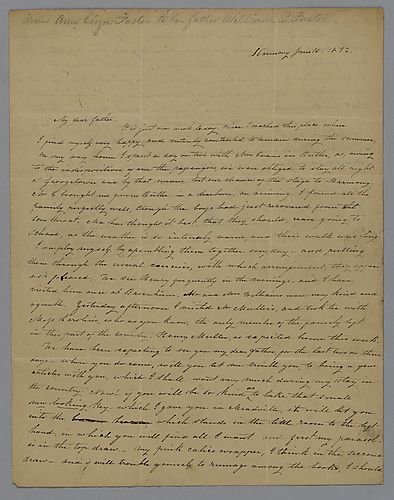 From Ann Eliza Foster to her father William B. Foster
Harmony June 15. 1832.
My dear father.
It is just one week today since I reached this place where
I find myself very happy, and entirely contented to remain during the summer
On my way home I spent a day or two with Mrs Evans in Butler, as, owing
to the indisposition of one the passengers, we were obliged to stay all night
at Georgetown and by that means, lost our chance of the stage to Harmony.
Mr E brought me from Butler in a dearborn, on arriving I found all the
family perfectly well though the boys had just recovered from that
sore throat, Ma has thought it best that they should, cease going to
school, as the weather is so intensely warm and their walk was long
I employ myself by assisting them together every day and putting
them through the usual exercises, with which arrangement, they appear
well pleased. We see Henry frequently in the evenings, and I have
visited him once at Barenheim. Mr and Mrs Williams were very kind and
agreable. Yesterday afternoon I visited Mr Muller's, and took tea with
Miss Caroline who as you know, the only member of the family left
in this part of the country. Henry Muller is expected home this week
We have been expecting to see you my dear father, for the last two or three
days - when you do come, will you let me trouble you to bring a few
articles with you, which I shall want very much during my stay in
the country. Now if you will be so kind as to take that small
new looking key, which I gave you in Meadville, it will let you
into the bureau which stands in the little room to the left
hand, in which you will find all I want and first my parasol
is in the top draw - my pink calico wrapper, I think in the second
draw - and if will trouble yourself to rummage among the books, I should